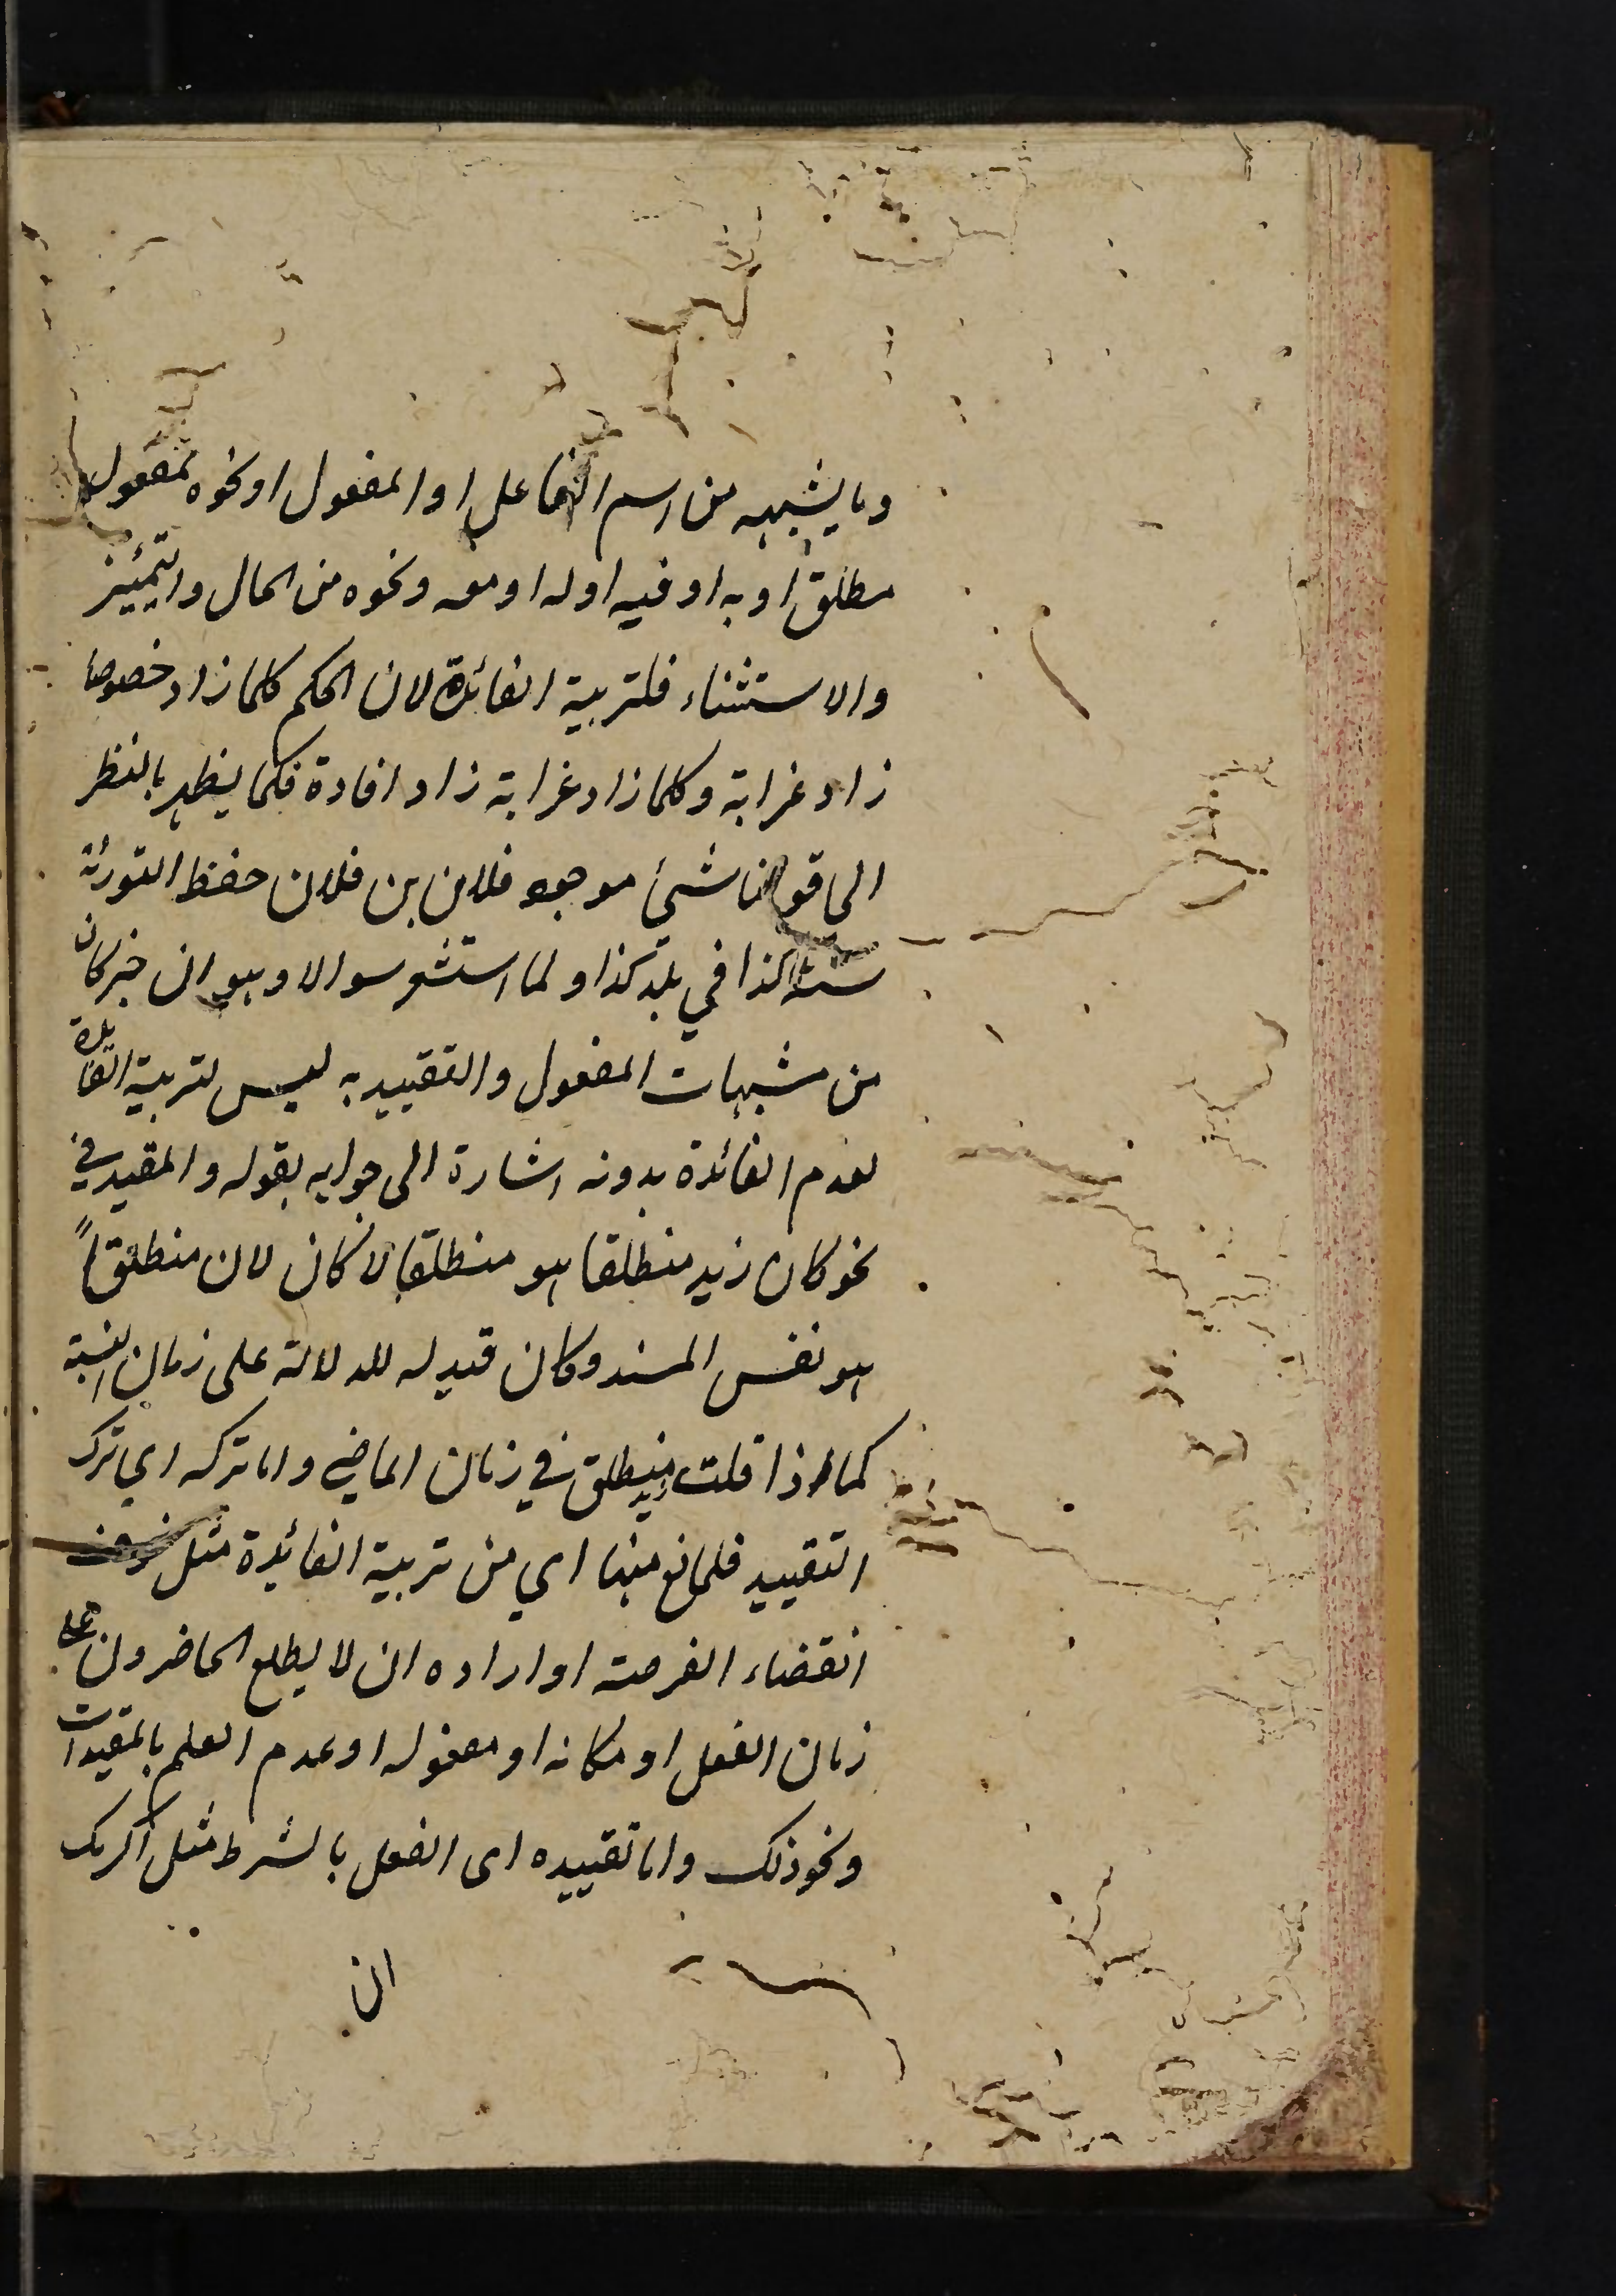 وما يشبهه من اسم الفاعل او المفعول او نحوه بمفعول
مطلق او به او فيه او له او معه ونحوه من الحال والتمييز
والاستثناء فلتربية الفائدة لان الحكم كلما زاد خصوصا
زاد غرابة وكلما زاد غرابة زاد افادة فكما يظهر بالنظر
الى قولنا شيئ موجود فلان بن فلان حفظ التورٰة
سنة كذا في بلد كذا ولما استشعر سوالا وهو ان خبر كان
من مشبهات المفعول والتقييد به ليس لتربية الفايدة
لعدم الفائدة بدونه اشارة الى جوابه بقوله والمقيد في
نحو كان زيد منطلقا هو منطلقا لا كان لان منطلقاً
هو نفس المسند وكان قيد له للدلالة على زمان النسبة
كما اذا قلت زيد منطلق في زمان الماضي واما تركه اي ترك
التقييد فلمانع منها اي من تربية الفائدة مثل خوف
انقضاء الفرصة او اراده ان لا يطلع الحاضرون على
زمان الفعل او مكانه او مفعوله او عدم العلم بالمقيدات
ونحو ذلك واما تقييده اى الفعل بالشرط مثل اكرمك
ان